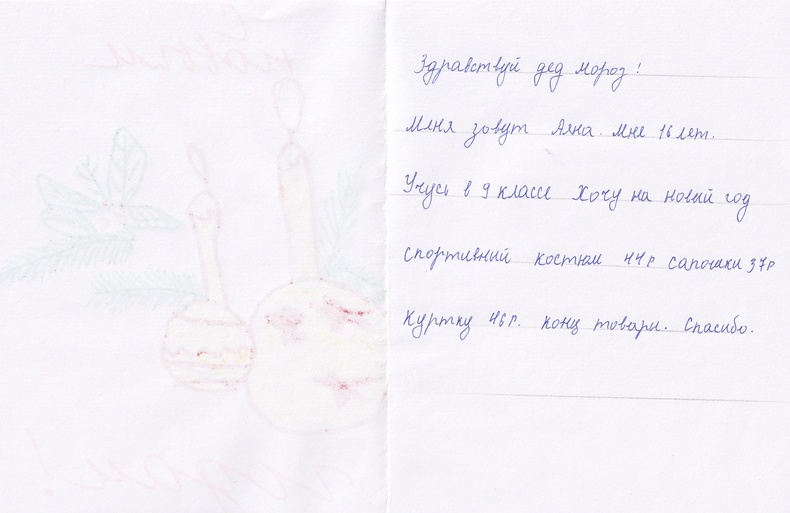 Здравствуй дед мороз!
Меня зовут Аяна. Мне 16 лет.
Учусь в 9 классе Хочу на новый год
спортивний костюм 44р сапошки 37р
Куртку 46р. конц товари. Спасибо.
С
новым
годом!